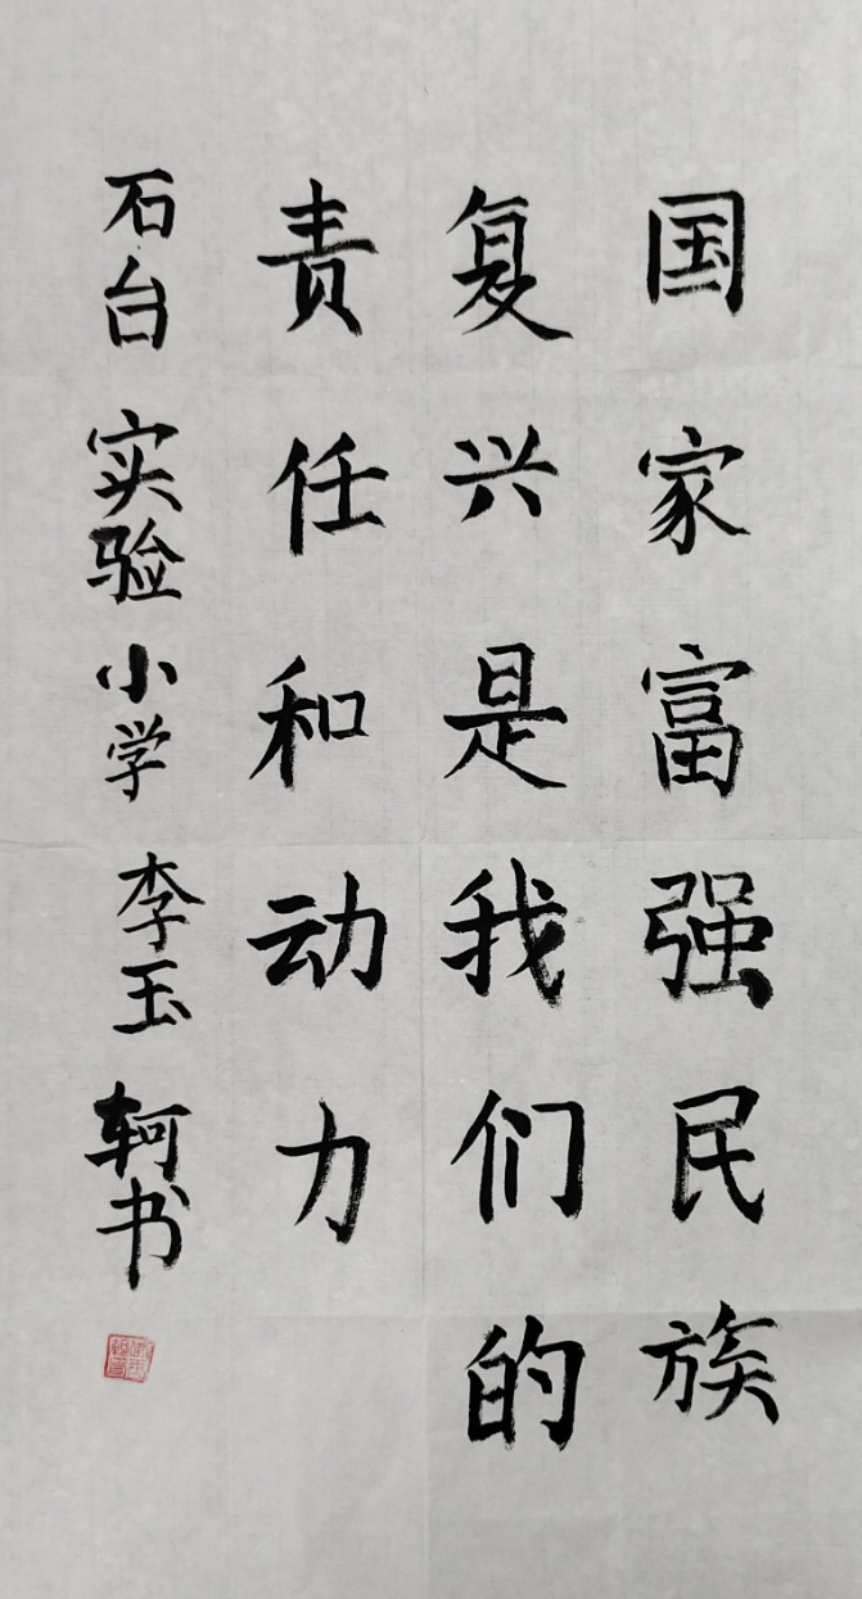 国家富强民族
复兴是我们的
责任和动力
石台实验小学李玉轲书